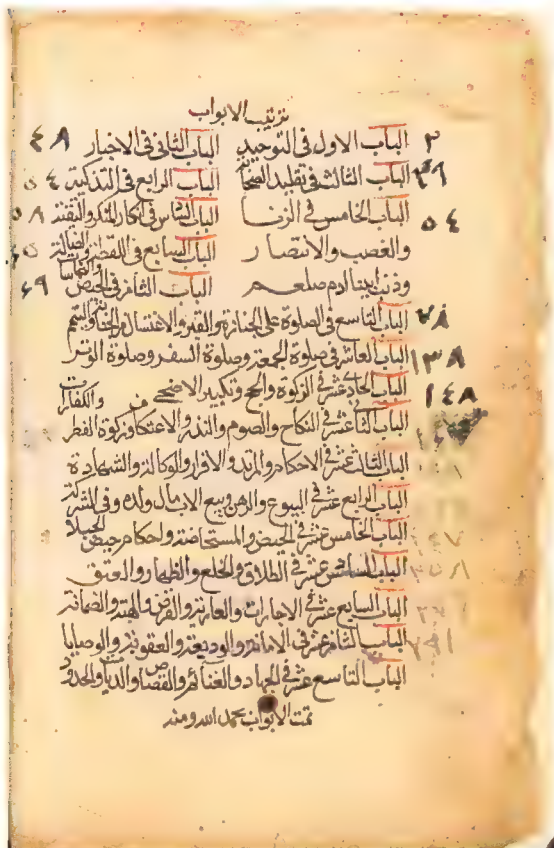 ترتيب الابواب
٢ الباب الاول في التوحيد الباب الثاني في الاخبار ٤٨
الباب الثالث في تقليد الصحابة الباب الرابع في التذكية ٥٤
٥٤ الباب الخامس في الزنا الباب السادس في انكار المنكر والتقية ٥٨
والغصب والانتصار الباب السابع في اللقطة والضالة ٦٥
وذنب ابينا ادم صلعم الباب الثامن في الحيض ٦٩
٧٨ الباب التاسع في الصلوة على الجنازة والقبر والاغتسال من الجنابة والتيمم
١٣٨ الباب العاشر في صلوة الجمعة وصلوة السفر وصلوة الوتر
١٤٨ الباب الحادي عشر في الزكوة والحج وتكبير الاضحى والكفارات
الباب الثاني عشر في النكاح والصوم والنذر والاعتكاف وزكوة الفطر
الباب الثالث عشر في الاحكام والمرتد والاقرار والوكالة والشهادة
الباب الرابع عشر في البيوع والرهن وبيع الاب مال ولده وفي الشركة
الباب الخامس عشر في الحيض والمستحاضة واحكام حيض الحبلا
الباب السادس عشر في الطلاق والخلع والظهار والعتق
الباب السابع عشر في الاجارات والعارية والقرض والهبة والضمانة
الباب الثامن عشر في الامانة والوديعة والعقوبة والوصايا
الباب التاسع عشر في الجهاد والغنائم والقصاص والديات والحدود
تمت الابواب بحمد الله ومنه